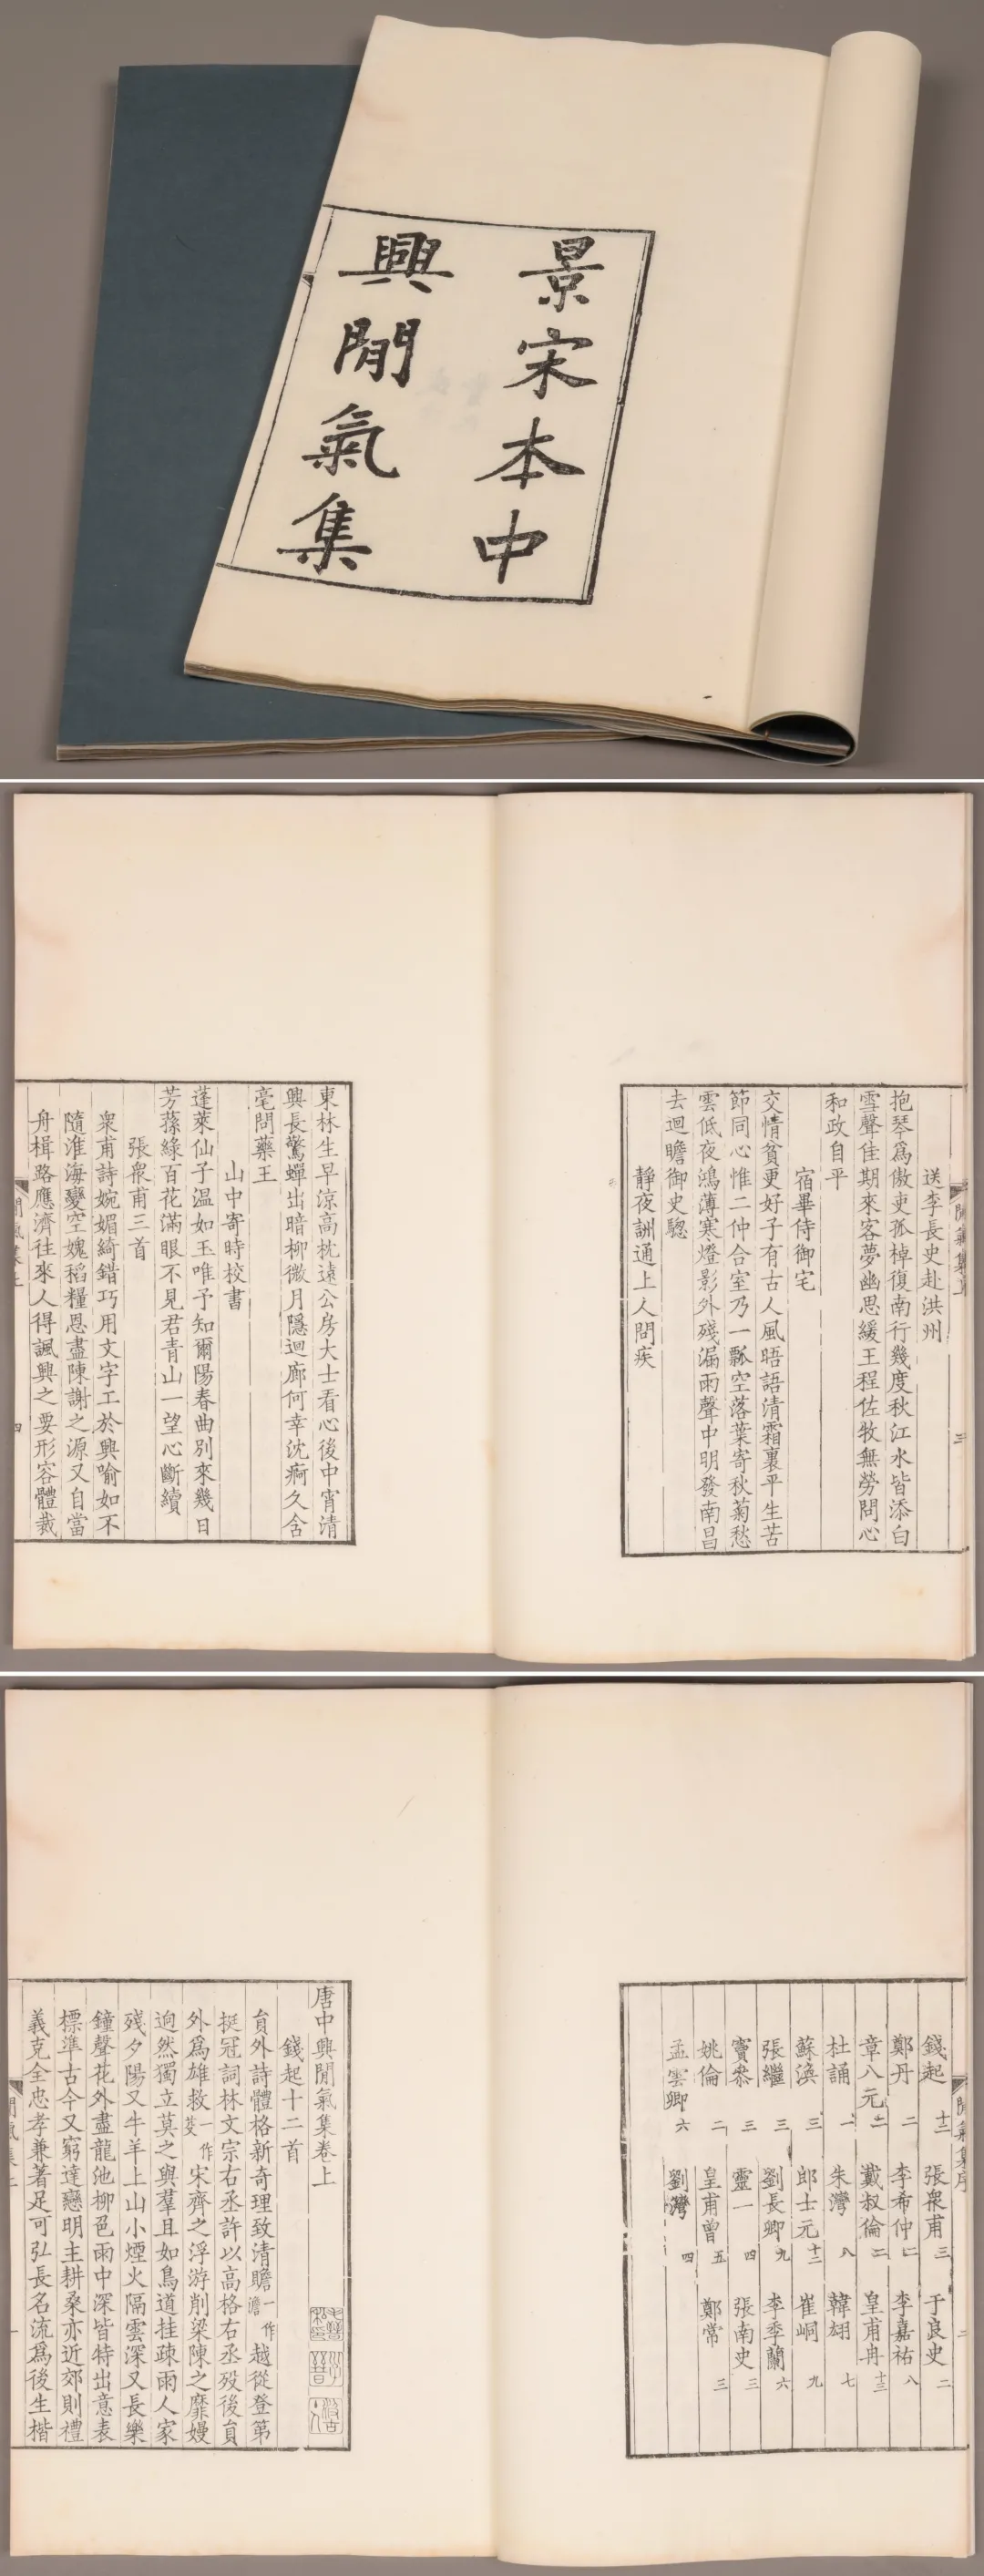 景宋本中
興閒氣集
閒氣集上
三
送李長史赴洪州
抱琴爲傲吏孤棹復南行幾度秋江水皆添白
雪聲佳期來客夢幽思緩王程佐牧無勞問心
和政自平
宿畢侍御宅
交情貧更好子有古人風晤語清霜裏平生苦
節同心惟二仲合室乃一瓢空落葉寄秋菊愁
雲低夜鴻薄寒燈影外殘漏雨聲中明發南昌
去迴瞻御史驄
靜夜詶通上人問疾
東林生早涼高枕遠公房大士看心後中宵清
興長驚蟬出暗柳微月隱迴廊何幸沈痾久含
毫問藥王
山中寄時校書
蓬萊仙子温如玉唯予知爾陽春曲別來幾日
芳蓀綠百花滿眼不見君青山一望心斷續
張衆甫三首
衆甫詩婉媚綺錯巧用文字工於興喻如不
隨淮海變空媿稻糧恩盡陳謝之源又自當
舟楫路應濟往來人得諷興之要形容體裁
閒氣集上
四
閒氣集序
二
錢起十二 張衆甫三 于良史二
鄭丹二 李希仲二 李嘉祐八
章八元二 戴叔倫二 皇甫冉十三
杜誦一 朱灣八 韓翃七
蘇渙三 郎士元十二 崔峒九
張繼三 劉長卿九 李季蘭六
竇叅三 靈一四 張南史三
姚倫二 皇甫曾五 鄭常三
孟雲卿六 劉灣四
唐中興閒氣集卷上
錢起十二首
貟外詩體格新奇理致清贍一作澹越從登第
挺冠詞林文宗右丞許以高格右丞歿後貟
外爲雄救一作芟宋齊之浮游削梁陳之靡嫚
逈然獨立莫之與羣且如鳥道挂疎雨人家
殘夕陽又牛羊上山小煙火隔雲深又長樂
鐘聲花外盡龍池柳邑雨中深皆特出意表
標準古今又窮達戀明主耕桑亦近郊則禮
義克全忠孝兼著足可弘長名流爲後生楷
閒氣集上
一